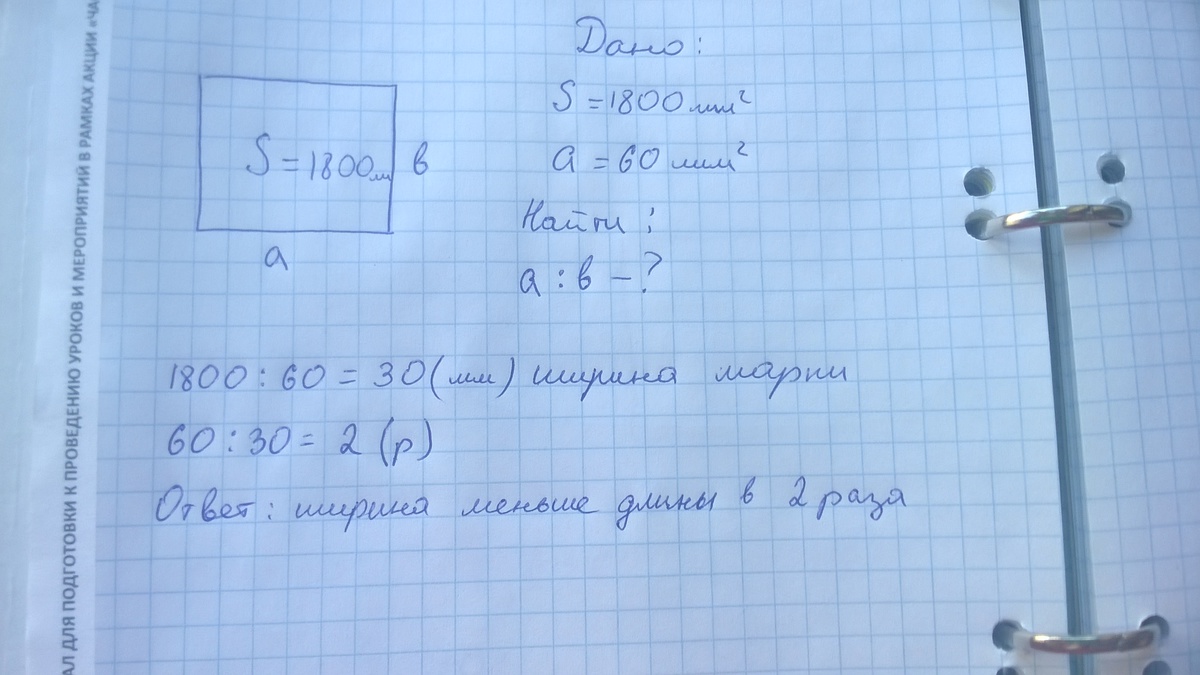 АЛ ДЛЯ ПОДГОТОВКИ К ПРОВЕДЕНИЮ УРОКОВ И МЕРОПРИЯТИЙ В РАМКАХ АКЦИИ «ЧА
Дано:
S = 1800 мм²
a = 60 мм²
Найти:
a : в – ?
S = 1800 мм
в
a
1800 : 60 = 30 (мм) ширина марки
60 : 30 = 2 (р)
Ответ: ширина меньше длины в 2 раза